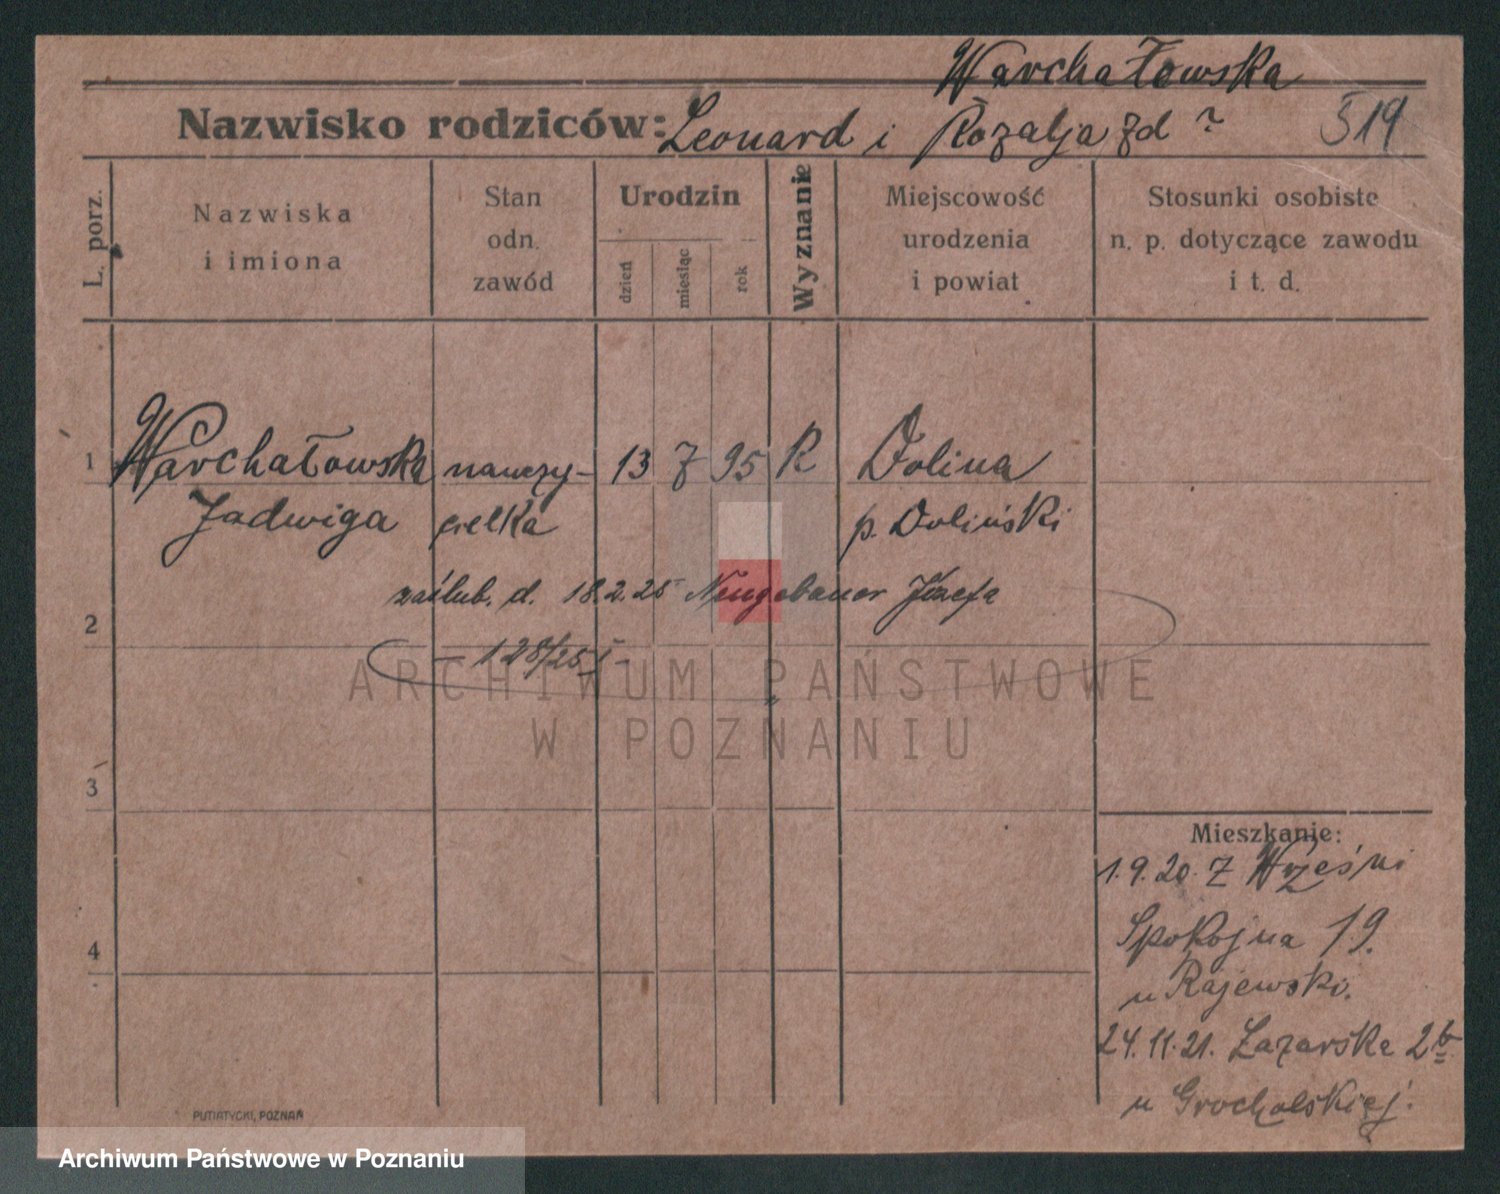 Warchałowska
Nazwisko rodziców: Leonard i Rozalja zd ? 519
L. porz.
Nazwiska
i imiona
Stan
odn.
zawód
Urodzin
dzień
miesiąc
rok
Wyznanie
Miejscowość
urodzenia
i powiat
Stosunki osobiste
n. p. dotyczące zawodu
i t. d.
1 Warchałowska nauczy- 13 7 95 R Dolina
Jadwiga cielka p. Doliński
zaślub. d. 18.2.25 Neugebauer Józefa
2
- 128/25 I -
ARCHIWUM PAŃSTWOWE
W POZNANIU
3
Mieszkanie:
1.9.20. Z Wrześni
Spokojna 19.
4
u Rajewski.
24.11.21. Łazarska 2b
u Grocholskiej.
PUTIATYCKI, POZNAŃ
Archiwum Państwowe w Poznaniu